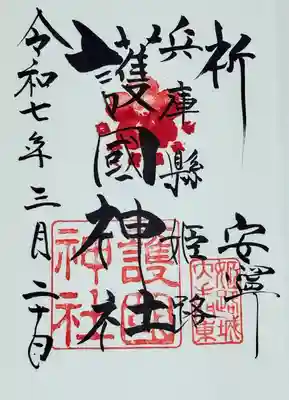 祈 安寧
兵庫縣姫路
護國神社
令和七年三月二十日
護国
神社